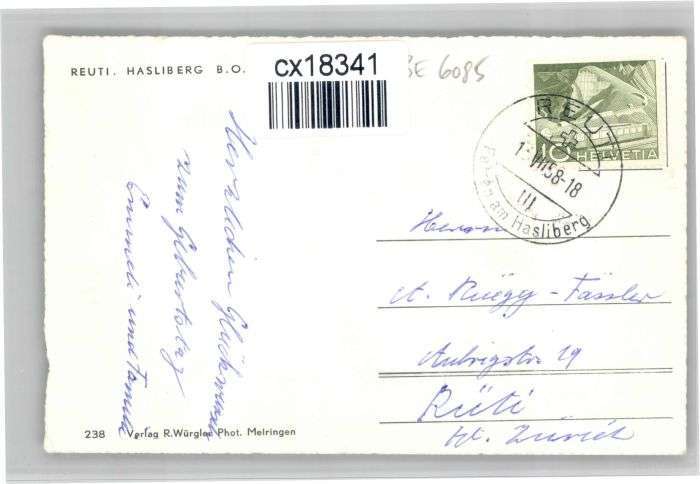 REUTI. HASLIBERG B.O.
cx18341
BE 6085
10 HELVETIA
REUTI
VII 58-18
am Hasliberg
Herzlichen Glückwunsch
zum Geburtstag
und Familie
Herrn
A. Rüegg-Fässler
19
Rüti
Kt. Zürich
238 Verlag R. Würgler Phot. Meiringen